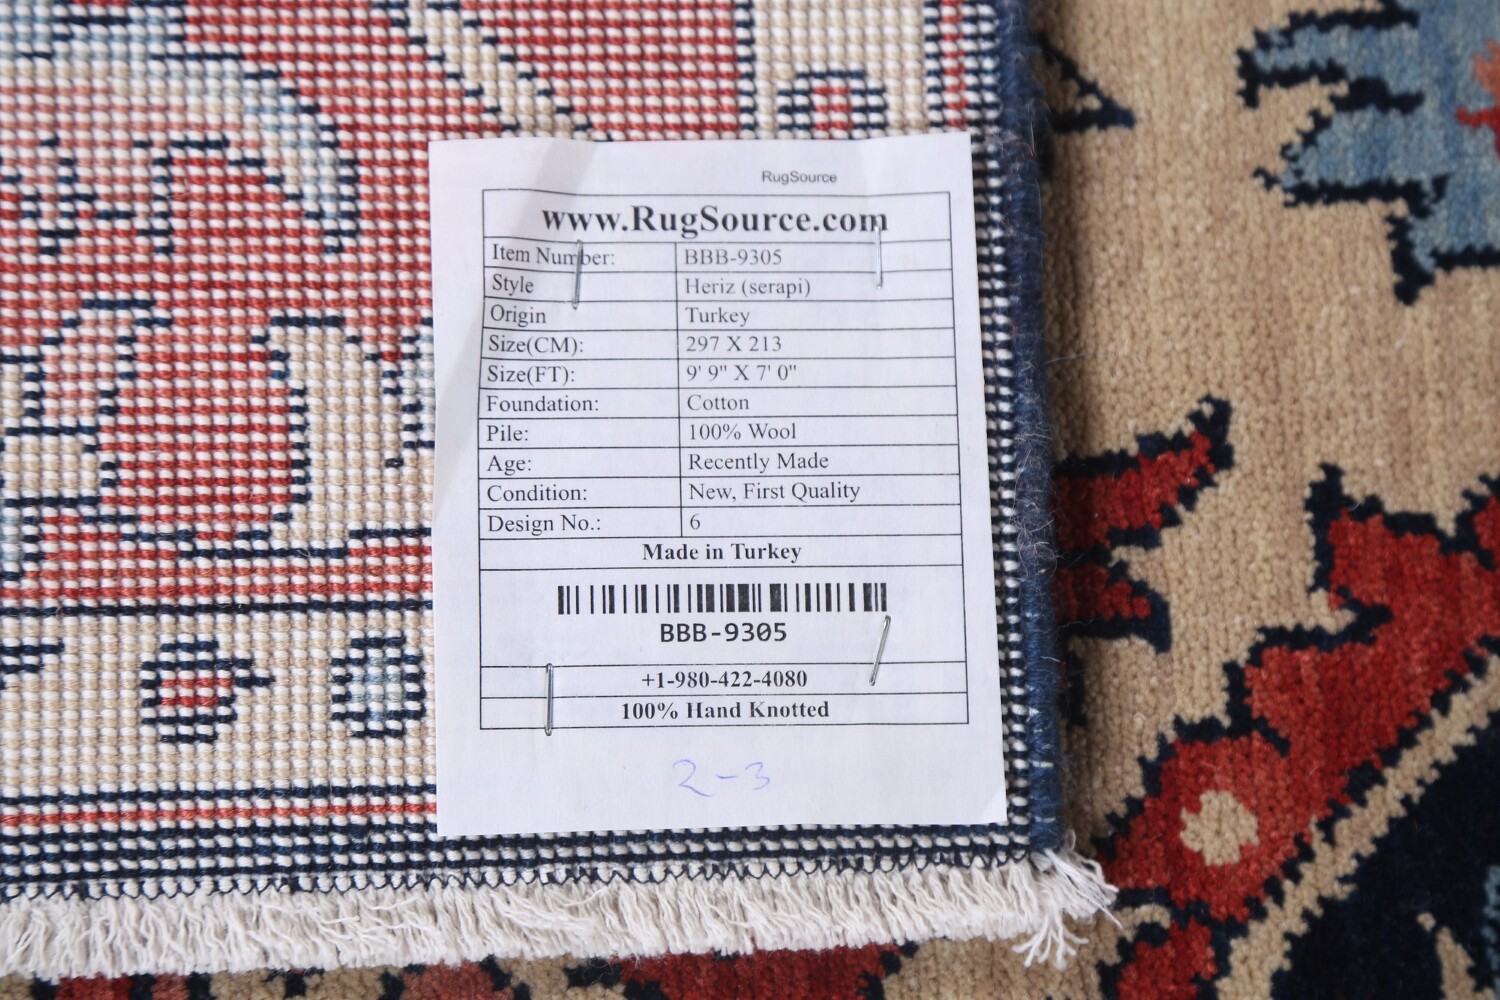 RugSource
www.RugSource.com
Item Number: BBB-9305
Style Heriz (serapi)
Origin Turkey
Size(CM): 297 X 213
Size(FT): 9' 9" X 7' 0"
Foundation: Cotton
Pile: 100% Wool
Age: Recently Made
Condition: New, First Quality
Design No.: 6
Made in Turkey
BBB-9305
+1-980-422-4080
100% Hand Knotted
2-3